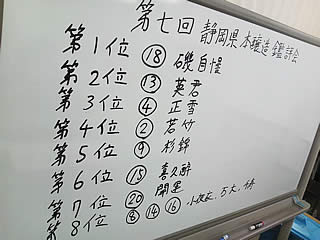 第七回 静岡県本醸造鑑評会
第1位 ⑱ 磯自慢
第2位 ⑬ 英君
第3位 ④ 正雪
第4位 ② 若竹
第5位 ⑨ 杉錦
第6位 ⑮ 喜久醉
第7位 ⑳ 開運
第8位 ⑧ ⑭ ⑯ 小夜衣